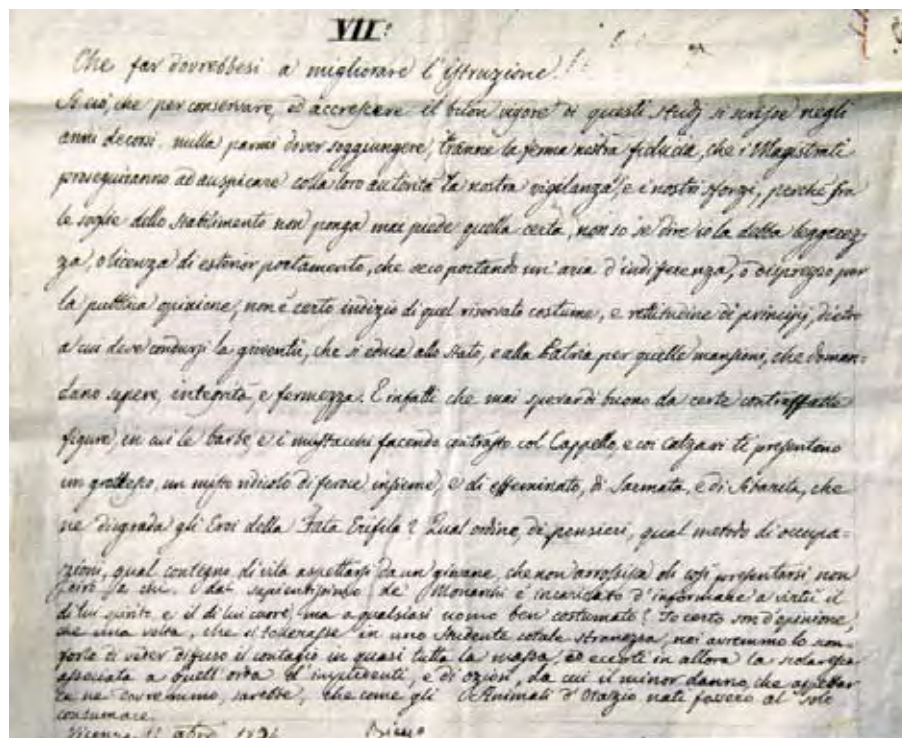 VII:
Che far dovrebbesi a migliorare l'istruzione?
A ciò, che per conservare, ed accrescere il buon vigore di questi studj si scrisse negli
anni decorsi nulla parmi dover soggiungere, tranne la ferma nostra fiducia, che i Magistrati
proseguiranno ad auspicare colla loro autorità la nostra vigilanza, e i nostri sforzi, perché fra
le soglie dello stabilimento non ponga mai piede quella certa, non so se dire io la debba leggerez-
za, o licenza di esterior portamento, che seco portando un'aria d'indifferenza, o disprezzo per
la pubblica opinione, non è certo indizio di quel riservato costume, e rettitudine di principj, dietro
a cui deve condursi la gioventù, che si educa allo Stato, e alla Patria per quelle mansioni, che doman-
dano sapere, integrità, e fermezza. E infatti che mai sperar di buono da certe contraffatte
figure, in cui le barbe, e i mustacchi facendo contrasto col Cappello, e coi calzari ti presentano
un grottesco, un misto ridicolo di feroce insieme, e di effeminato, di Sarmata, e di Sibarita, che
ne disgrada gli Eroi della Fata Erifila? Qual ordine di pensieri, qual metodo di occupa-
zioni, qual contegno di vita aspettarsi da un giovane, che non arrossisca di così presentarsi non
dirò a chi dal sapientissimo de' Monarchi è incaricato d'informare a virtù il
di lui spirito e il di lui cuore, ma a qualsiasi uomo ben costumato? Io certo son d'opinione,
che una volta, che si tollerasse in uno studente cotale stranezza, noi avremmo lo scon-
forto di veder diffuso il contagio in quasi tutta la massa, ed eccoti in allora la scolaresca
associata a quell'orda d'impudenti, e di oziosi, da cui il minor danno, che aspettar
ce ne dovremmo, sarebbe, che come gli Animati d'Orazio nati fossero al solo
consumare.
Vicenza